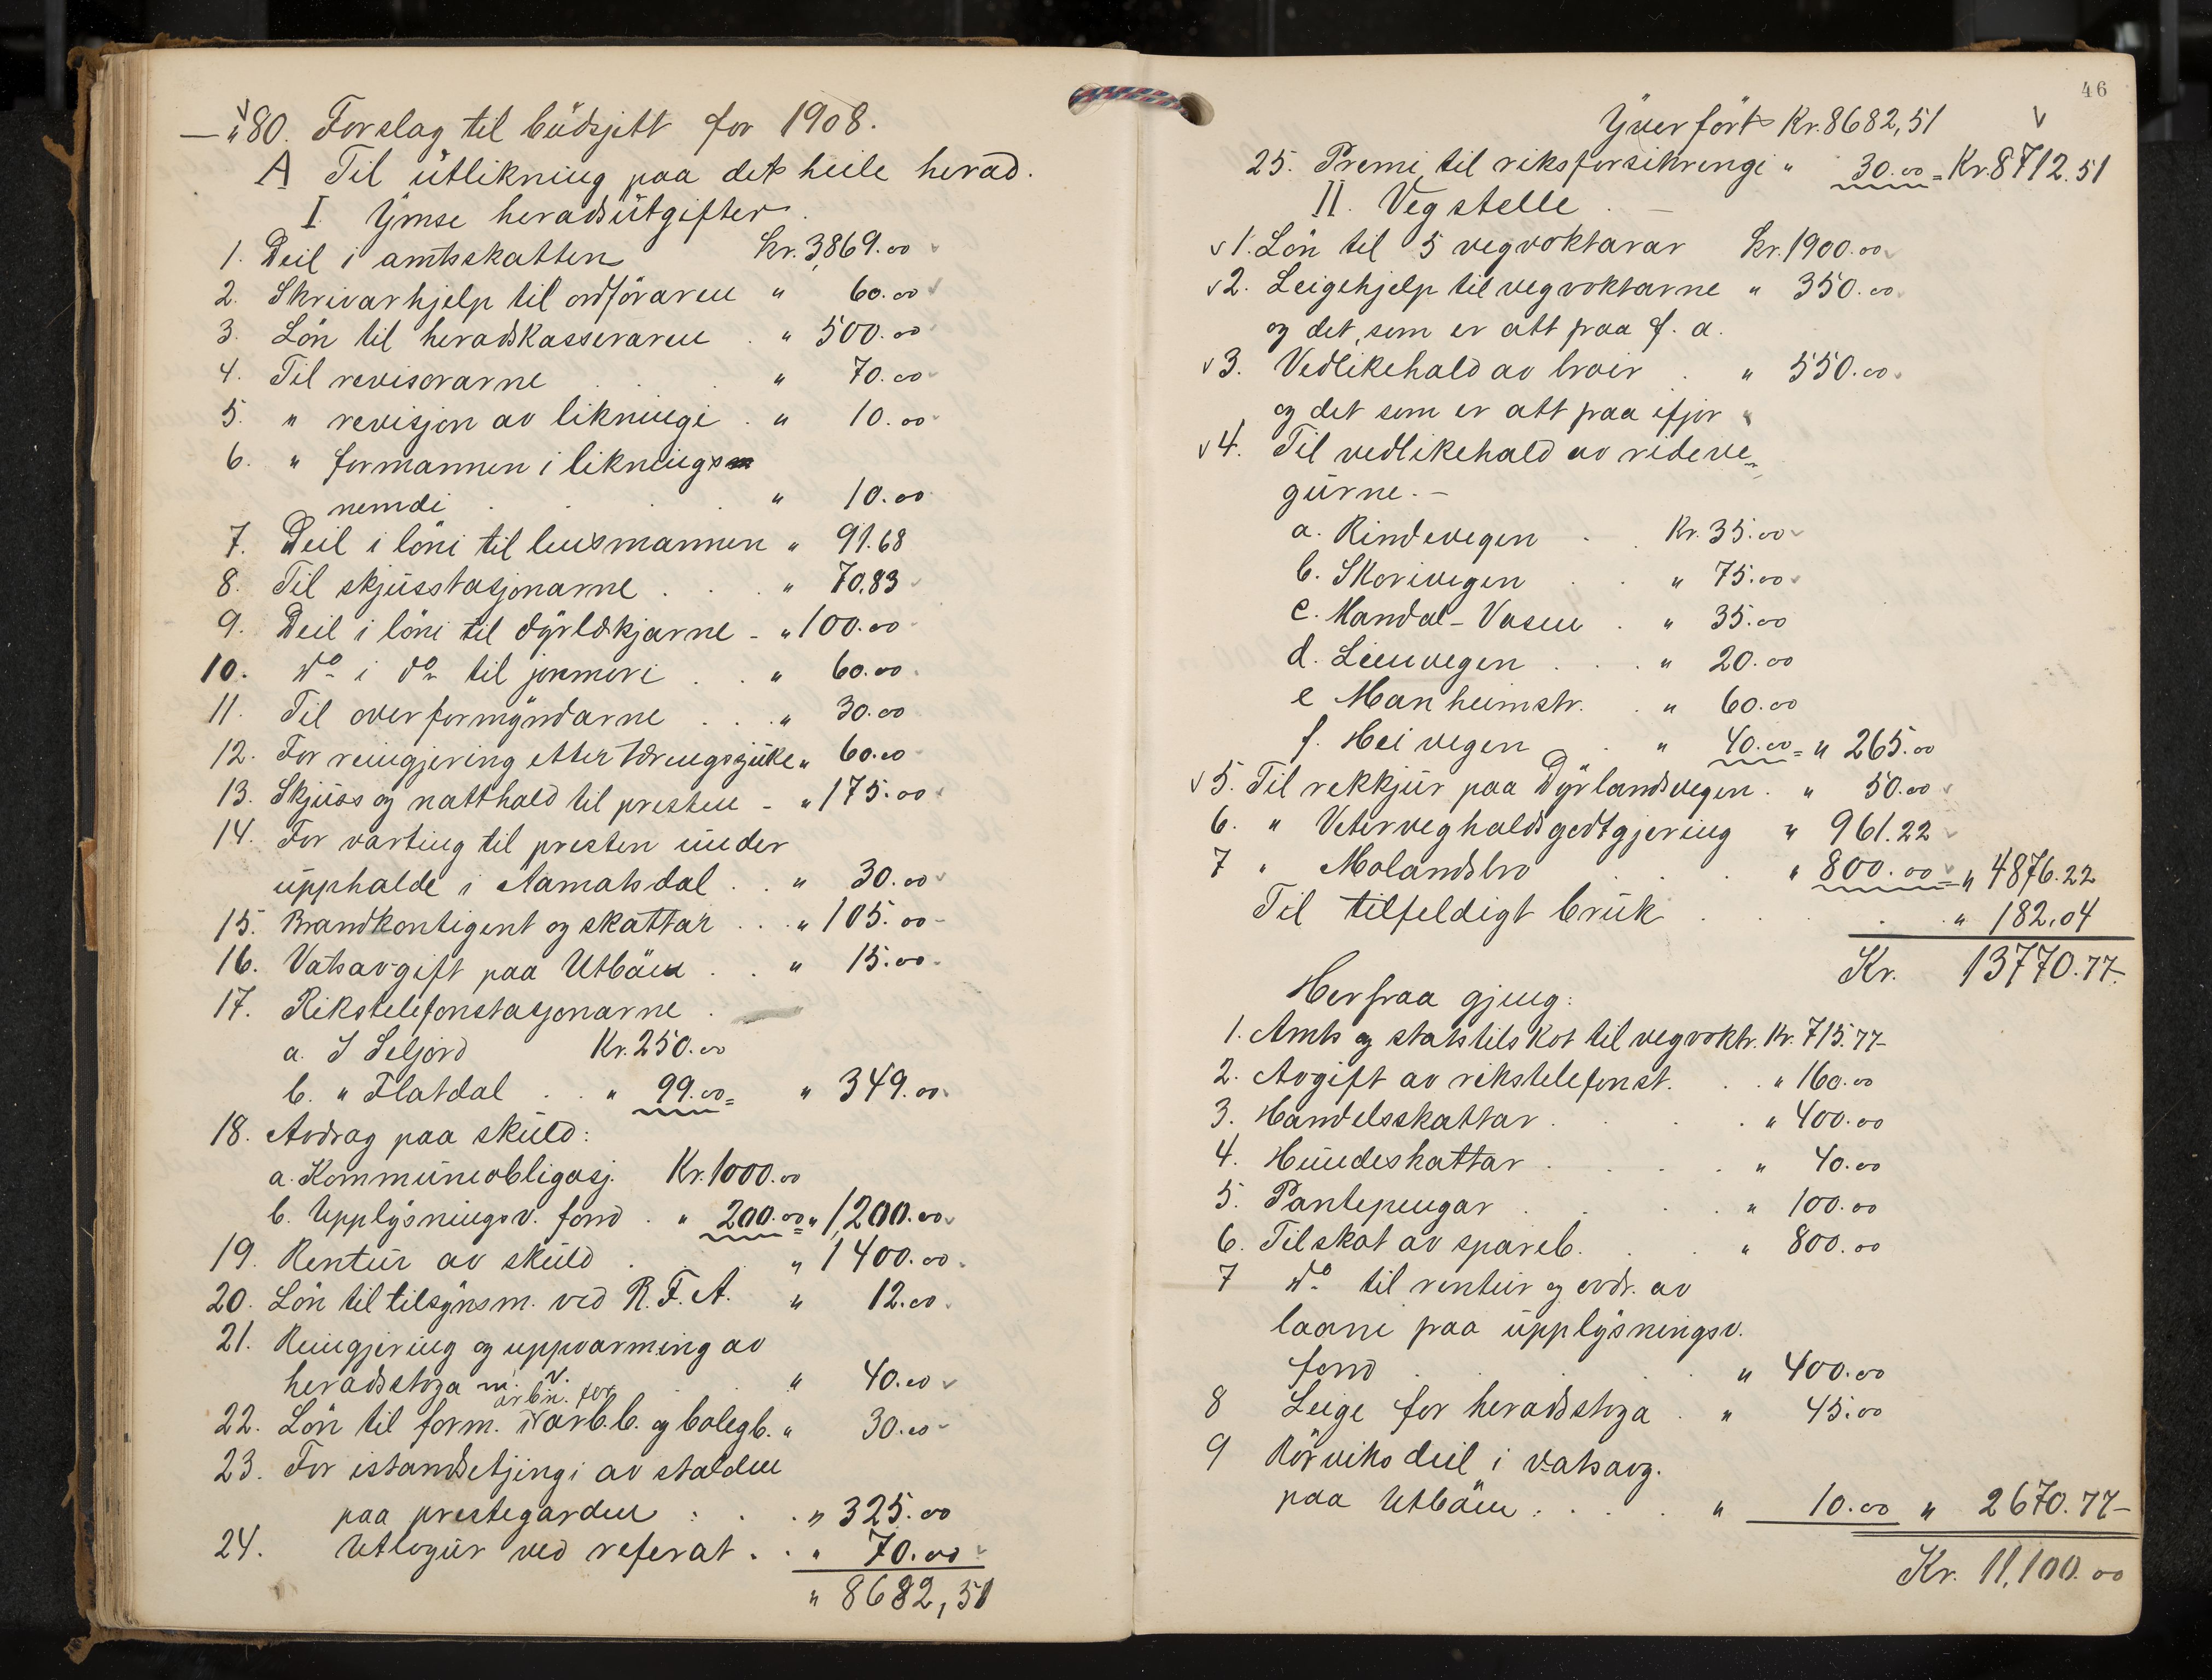 — " 80. Forslag til büdsjett for 1908.
A Til ütlikning paa det heile herad.
I. Ymse heradsütgifter.
1. Deil i amtsskatten kr. 3,869.00
2. Skrivarhjelp til ordföraren " 60.00
3. Lön til heradskasseraren . " 500.00
4. Til revisorarne . . . " 70.00
5. " revisjon av likningi . " 10.00
6. " formannen i liknings
nemdi . . . . " 10.00
7. Deil i löni til lensmannen " 91.68
8. Til skjüsstasjonarne . . . " 70.83
9. Deil i löni til dyrlækjarne - " 100.00
10. do i do til jormori . . " 60.00
11. Til overformyndarne . . . " 30.00
12. For reingjering etter tæringssjüke " 60.00
13. Skjüss og natthald til presten - " 175.00
14. For varting til presten ünder
üpphalde i Aamotsdal . . " 30.00
15. Brandkontigent og skattar . . . " 105.00
16. Vatsavgift paa Utbäen . . " 15.00
17. Rikstelefonstasjonarne .
a. I Seljord Kr. 250.00
b. " Flatdal . . " 99.00 = " 349.00
18. Avdrag paa sküld:
a. Kommüneobligasj. Kr. 1000.00
b. Upplysningsv. fond . " 200.00 = " 1,200.00
19. Rentür av sküld . . " 1400.00
20. Lön til tilsynsm. ved R. F. A. " 12.00
21. Reingjering og uppvarming av
heradsstoga m. v. . . " 40.00
arbn. for
22. Lön til form. i arb.b. og bolegb. " 30.00
23. For istandsetjingi av stalden
paa prestegarden : . . " 325.00
24. Utlogür ved referat . . " 70.00
" 8682,51
46
Yverfört Kr. 8682,51
25. Premi til riksforsikringi " 30.00 = Kr. 8712.51
II. Vegstelle . —
1. Lön til 5 vegvoktarar kr. 1900.00
2. Leigehjelp til vegvoktarne " 350.00
og det, som er att paa f. a.
3. Vedlikehald av brüir . " 550.00
og det som er att paa ifjor "
4. Til vedlikehald av rideve-
gürne. —
a. Rindevegen . . Kr. 35.00
b. Skorivegen . . " 75.00
c. Mandal - Vasen . " 35.00
d. Lienvegen . . . " 20.00
e Manheimstr. . " 60.00
f. Heivegen . " 40.00 = " 265.00
5. Til rekkjür paa Dyrlandsvegen . " 50.00
6. " Vetervegshaldsgodtgjering " 961.22
7 " Molandsbro . . . " 800.00 = " 4876.22
Til tilfeldigt brük . . . . " 182.04
Kr. 13770.77
Herfraa gjeng:
1. Amts og statstilskot til vegvoktr. Kr. 715.77
2. Avgift av rikstelefonst. . . " 160.00
3. Handelsskattar . . . . " 400.00
4. Hündeskattar . . . . " 40.00
5. Pantepengar . . . . " 100.00
6. Tilskot av spareb. . . " 800.00
7 do til rentür og avdr. av
laani paa üpplysningsv.
fond . . . . " 400.00
8 Leige for heradsstoga . " 45.00
9 Rörviks deil i vatsavg.
paa Utbäen . . . . " 10.00 " 2670.77
Kr. 11,100.00